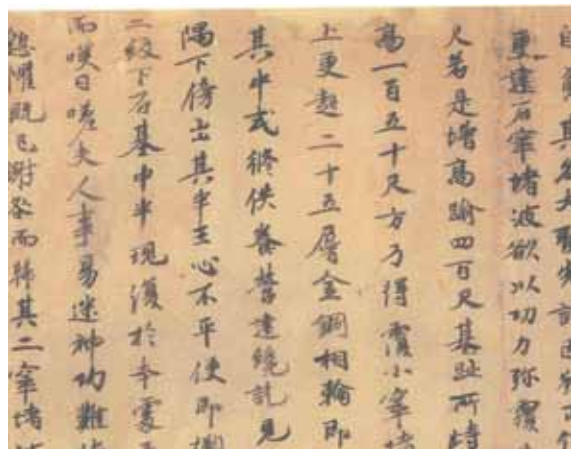 自負其名大聖先記因發正
更建石窣堵波欲以功力弥覆
尺若是增高踰四百尺基趾所峙
高一百五十尺方乃得覆小窣堵
上更起二十五層金銅相輪即
其中式修供養營建纔訖見
隅下傍出其半王心不平便即擲
二級下石基中半現復於本處
而嘆曰嗟夫人事易迷神功難
懼既已謝咎而歸其二窣堵波